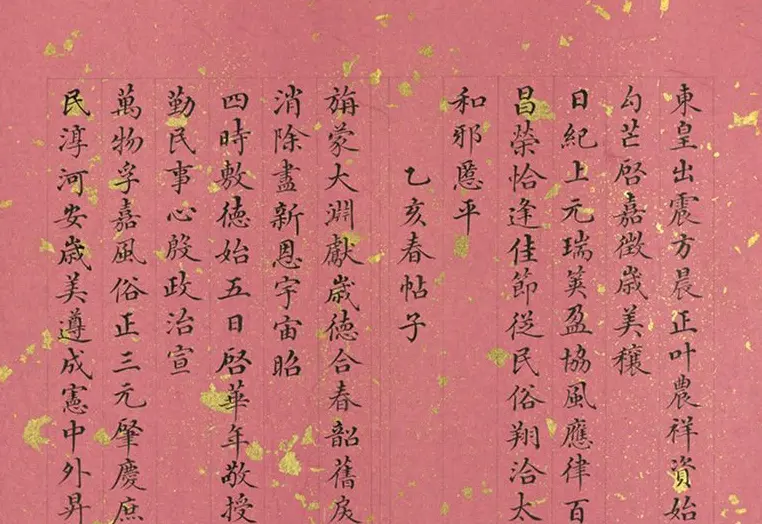 東皇出震方晨正叶農祥資始
勾芒啓嘉徵歲美穰
日紀上元瑞莢盈協風應律百
昌榮恰逢佳節從民俗翔洽太
和邪慝平
乙亥春帖子
旃蒙大淵獻歲德合春韶舊戾
消除盡新恩宇宙昭
四時敷德始五日啓華年敬授
勤民事心殷政治宣
萬物孚嘉風俗正三元肇慶庶
民淳河安歲美遵成憲中外昇